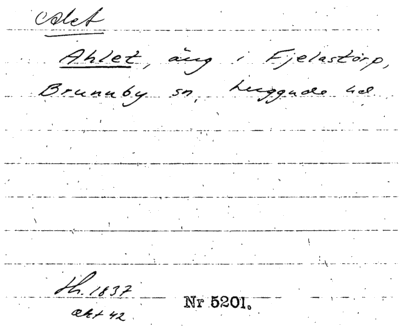 Alet
Ahlet, äng i Fjelastorp,
Brunnby sn, Luggude hd
Sk. 1837
akt 42
Nr 5201.